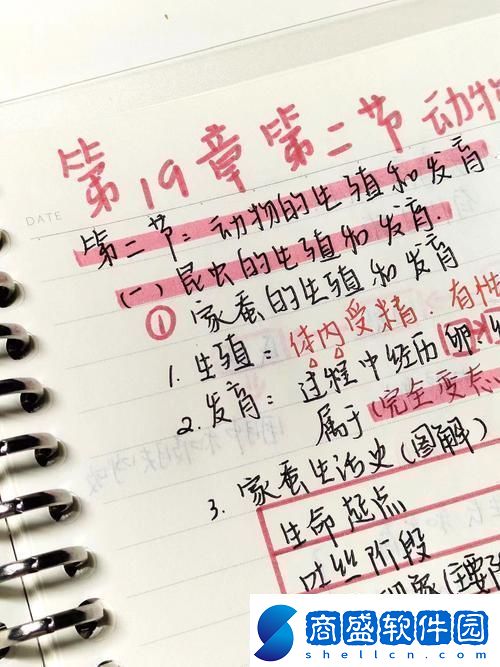 第19章 第二节 动物
DATE
第二节:动物的生殖和发育.
(一)昆虫的生殖和发育.
① 家蚕的生殖和发育
1. 生殖:体内受精.有性
2. 发育:过程中经历卵.
属于(完全变态
3. 家蚕生活史(图解)
生命起点
吐丝阶段
商盛软件园
shellcn.com